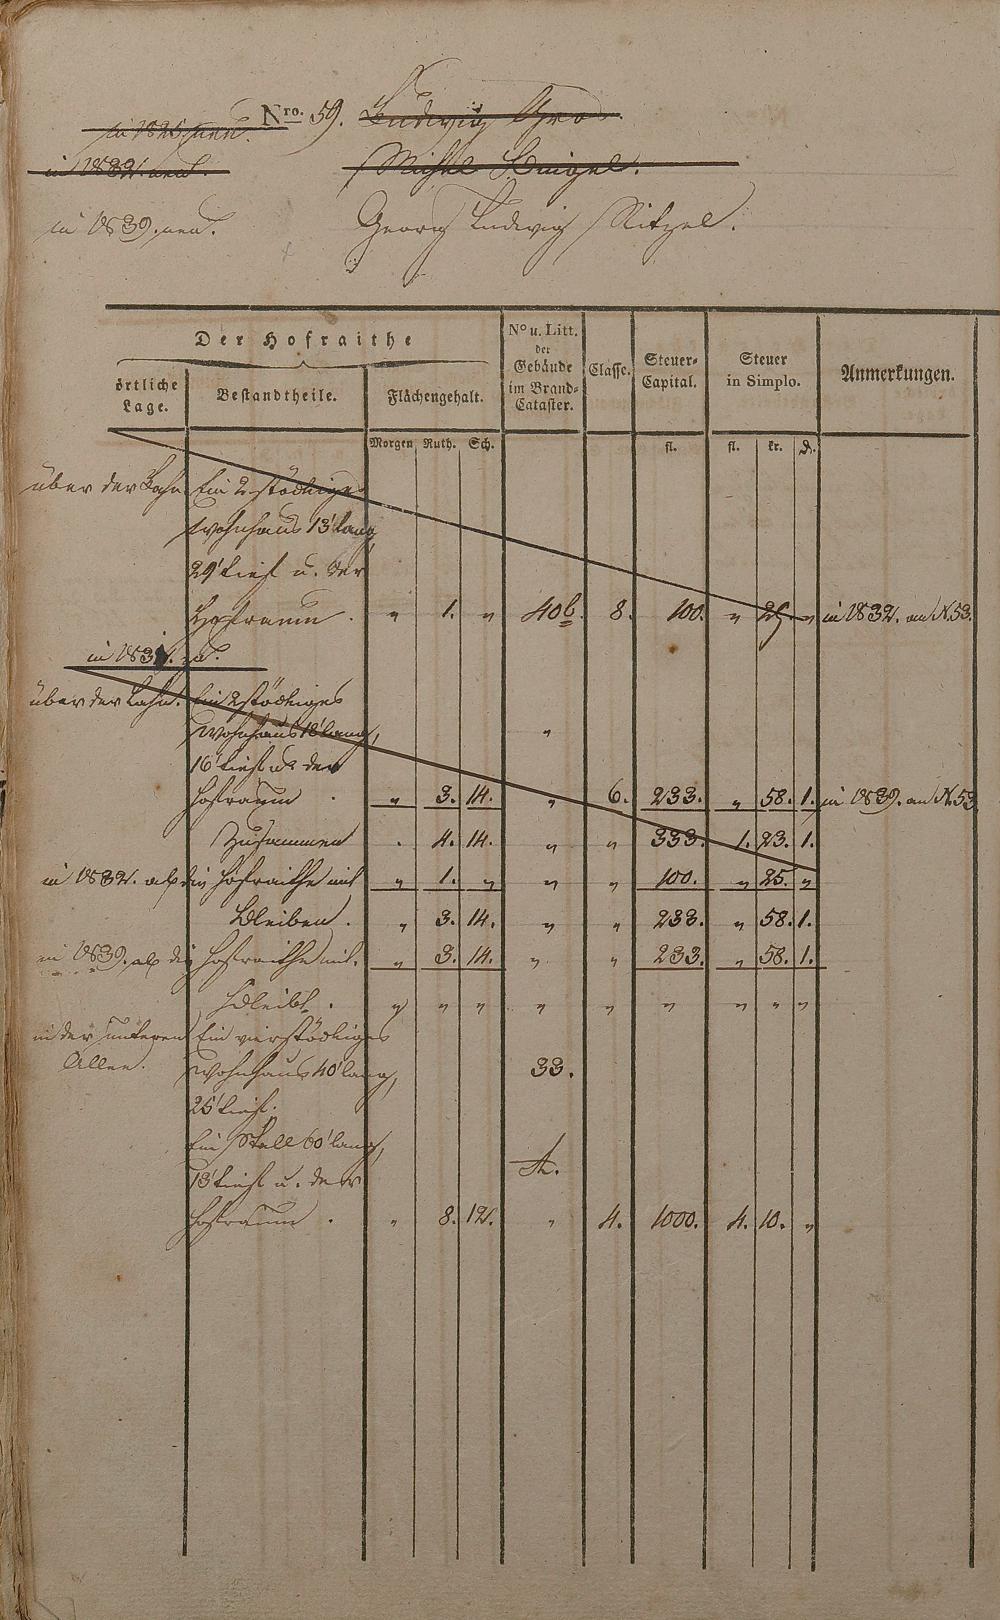 Nro. 59. Ludwig Gro
in 1825. neu.
in 1832. neu.
Michel
in 1839. neu.
Georg Ludwig Nitzel.
Der Hofraithe
örtliche Lage.
Bestandtheile.
Flächengehalt.
No u. Litt. der Gebäude im Brand-Cataster.
Classe.
Steuer-Capital.
Steuer in Simplo.
Anmerkungen.
Morgen Ruth. Sch. fl. fl. kr. d.
über der Lahn Ein 2 stöckiges
Wohnhaus 13' lang
29' tief u. der
Hofraum . „ 1. „ 40b. 8. 100. „ 25. „ in 1832. an N. 53.
in 183 . zu.
über der Lahn. Ein 2 stöckiges
Wohnhaus 18' lang, „
16' tief u. der
Hofraum . „ 3. 14. „ 6. 233. „ 58. 1. in 1839. an N. 53
Zusammen . 4. 14. „ „ 333. 1. 23. 1.
in 1832. ab die Hofraithe mit „ 1. „ „ „ 100. „ 25. „
Bleiben . „ 3. 14. „ „ 233. „ 58. 1.
in 1839. ab die Hofraithe mit. „ 3. 14. „ „ 233. „ 58. 1.
Bleibt . „ „ „ „ „ „ „ „ „
in der unteren Ein vierstöckiges
Allee. Wohnhaus 40' lang, 33.
25' tief.
Ein Stall 60' lang,
A.
13' tief u. der
Hofraum . „ 8. 12. „ 4. 1000. 4. 10. „